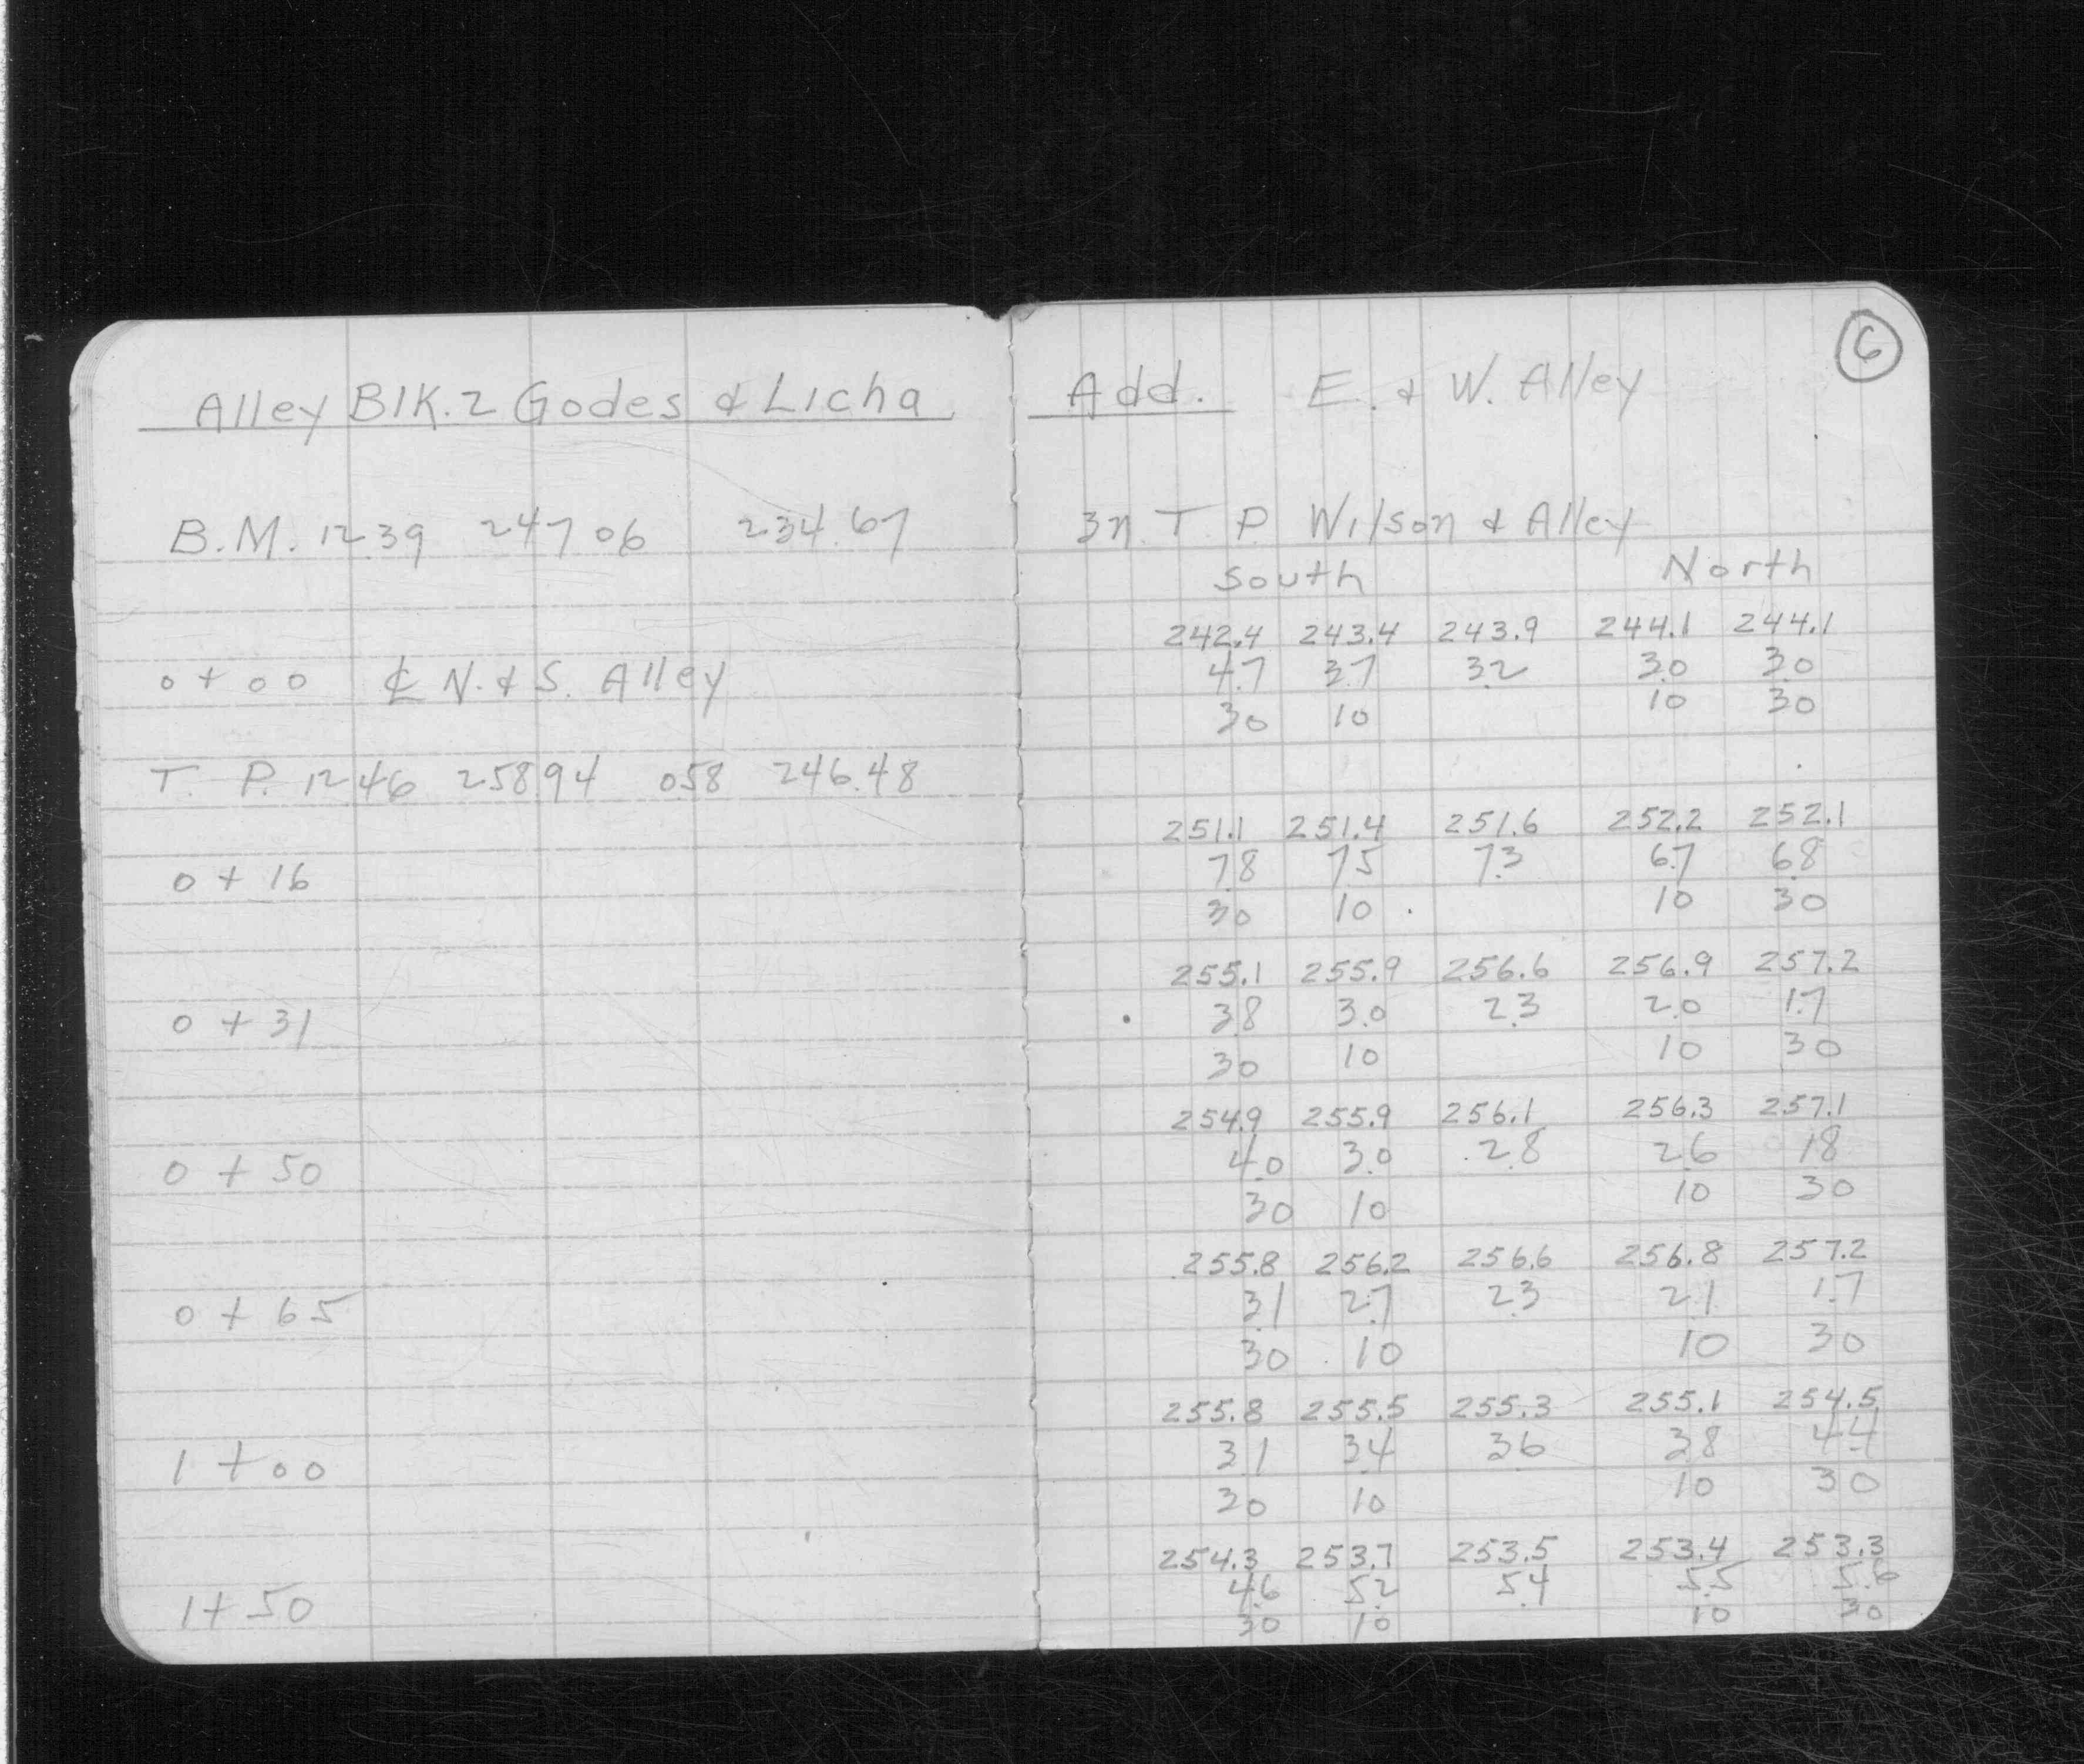 6
Alley Blk. 2 Godes & Licha Add. E. & W. Alley
B.M. 12.39 247 06 234.67 3n. T. P. Wilson & Alley
South North
242.4 243.4 243.9 244.1 244.1
0+00 ℄ N. & S. Alley 4.7 3.7 3.2 3.0 3.0
30 10 10 30
T. P. 12.46 258.94 0.58 246.48
251.1 251.4 251.6 252.2 252.1
0+16 7.8 7.5 7.3 6.7 6.8
30 10 10 30
255.1 255.9 256.6 256.9 257.2
0+31 3.8 3.0 2.3 2.0 1.7
30 10 10 30
254.9 255.9 256.1 256.3 257.1
0+50 4.0 3.0 2.8 2.6 1.8
30 10 10 30
255.8 256.2 256.6 256.8 257.2
0+65 3.1 2.7 2.3 2.1 1.7
30 10 10 30
255.8 255.5 255.3 255.1 254.5
1+00 3.1 3.4 3.6 3.8 4.4
30 10 10 30
254.3 253.7 253.5 253.4 253.3
1+50 4.6 5.2 5.4 5.5 5.6
30 10 10 30